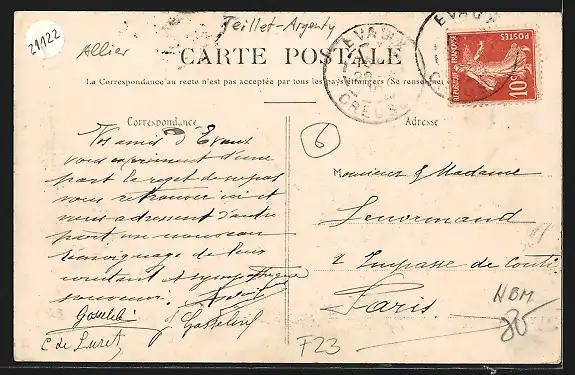 21122
Teillet-Argenty
Allier
CARTE POSTALE
La Correspondance au recto n'est pas acceptée par tous les pays étrangers (Se renseigner
EVAUX
CREUSE
EVAUX
POSTES
REPUBLIQUE FRANÇAISE
10c
Correspondance
Adresse
6
Vos amis d'Evaux
vous expriment d'une
part le regret de ne pas
vous retrouver ici et
vous adressent d'autre
part un nouveau
témoignage de leur
constant et sympathique
souvenir.
C de Luret
Monsieur & Madame
Lenormand
2 Impasse de Conti
Paris.
NBM
F23